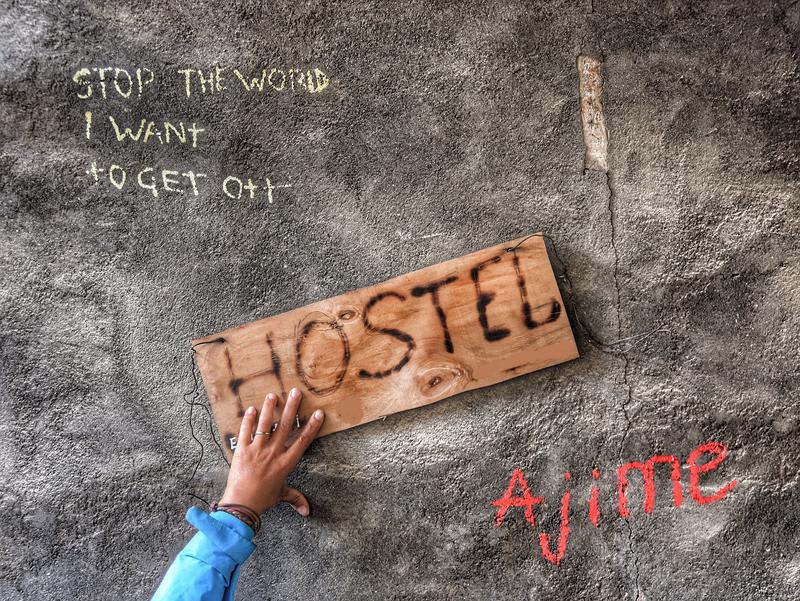 STOP THE WORLD
I WANt
tO GET Off
HOSTEL
Ajime